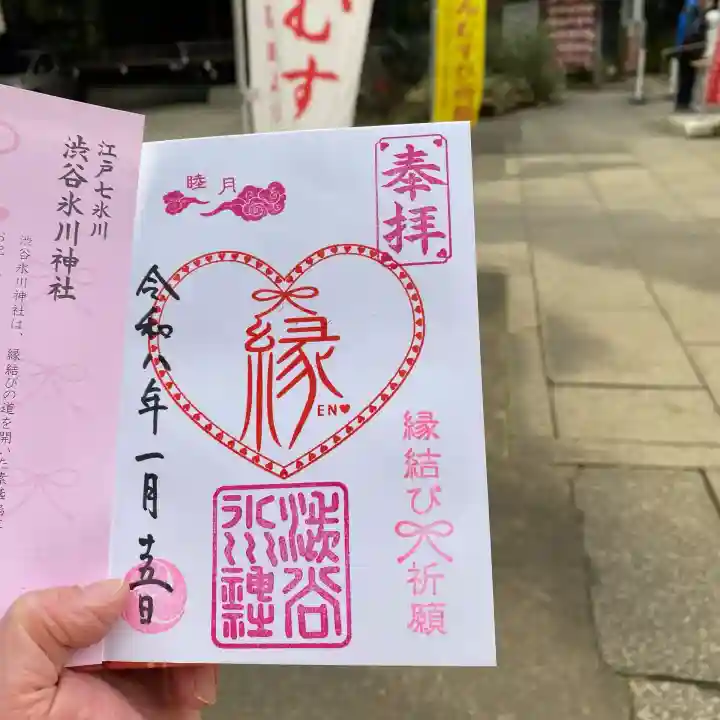 むす
江戸七氷川
渋谷氷川神社
渋谷氷川神社は、縁
結びの道を開いた素
奉拝
睦月
縁
EN
縁結び祈願
令和八年一月十五日
渋谷
氷川
神社